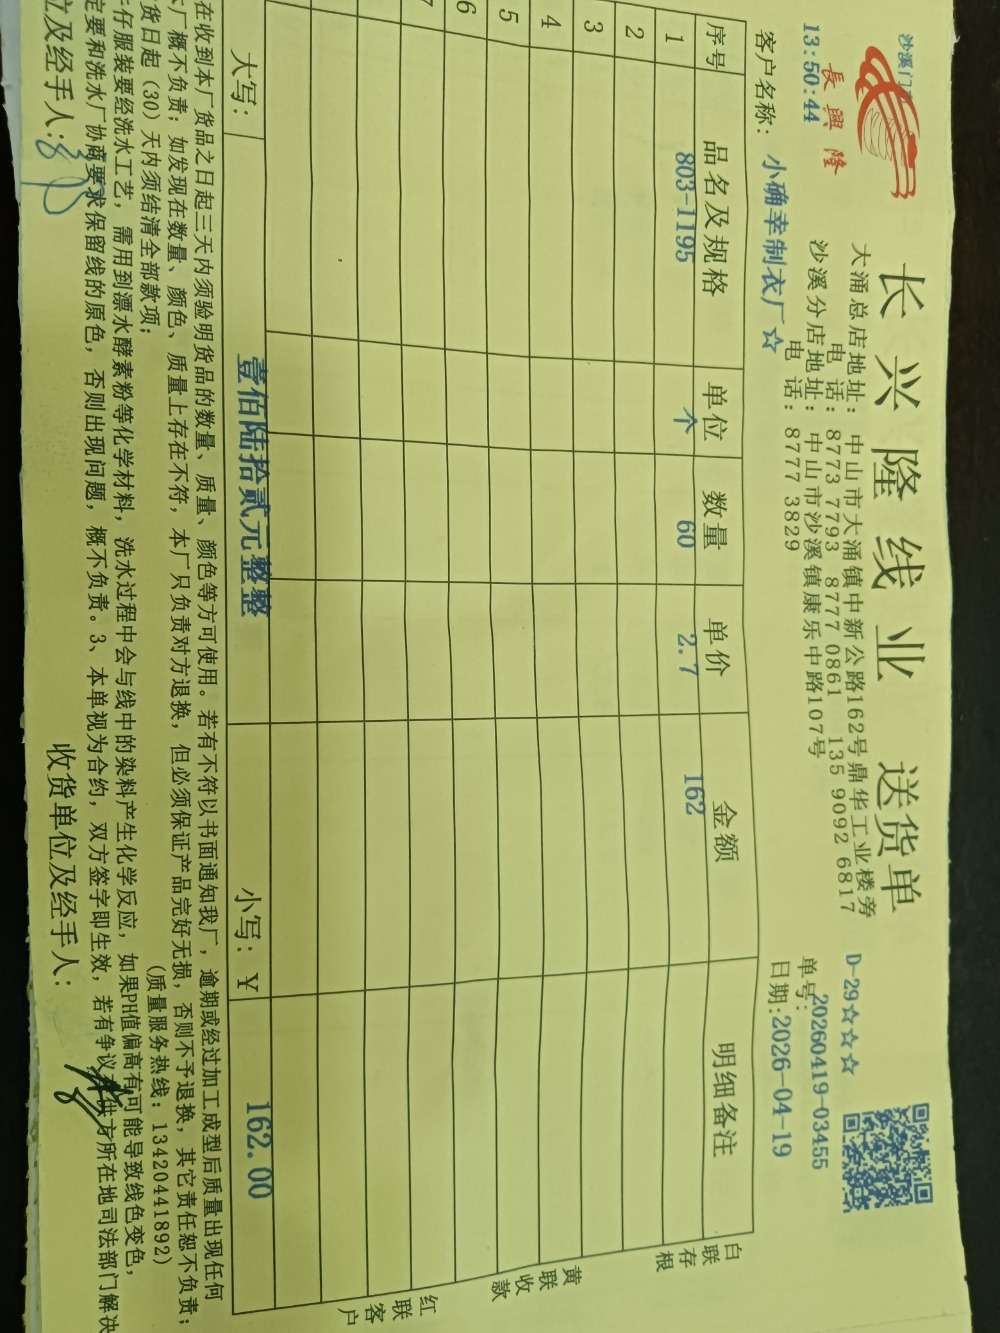 沙溪门
長興隆
13:50:44
长兴隆线业 送货单
大涌总店地址：中山市大涌镇中新公路162号鼎华工业楼旁
电 话：8773 7793 8777 0861 135 9092 6817
沙溪分店地址：中山市沙溪镇康乐中路107号
电 话：8777 3829
D-29☆☆☆
单号：20260419-03455
日期:2026-04-19
客户名称：小确幸制衣厂☆
序号 品名及规格 单位 数量 单价 金额 明细备注
1 803-1195 个 60 2.7 162
2
3
4
5
6
7
大写： 壹佰陆拾贰元整整 小写：￥ 162.00
白联存根
黄联收款
红联客户
在收到本厂货品之日起三天内须验明货品的数量、质量、颜色等方可使用。若有不符以书面通知我厂，逾期或经过加工成型后质量出现任何
本厂概不负责；如发现在数量、颜色、质量上存在不符，本厂只负责对方退换，但必须保证产品完好无损，否则不予退换，其它责任恕不负责；
货日起（30）天内须结清全部款项； （质量服务热线：13420441892）
牛仔服装要经洗水工艺，需用到漂水酵素粉等化学材料，洗水过程中会与线中的染料产生化学反应，如果PH值偏高有可能导致线色变色，
定要和洗水厂协商要求保留线的原色，否则出现问题，概不负责。3、本单视为合约，双方签字即生效，若有争议 供方所在地司法部门解决
位及经手人： 收货单位及经手人：